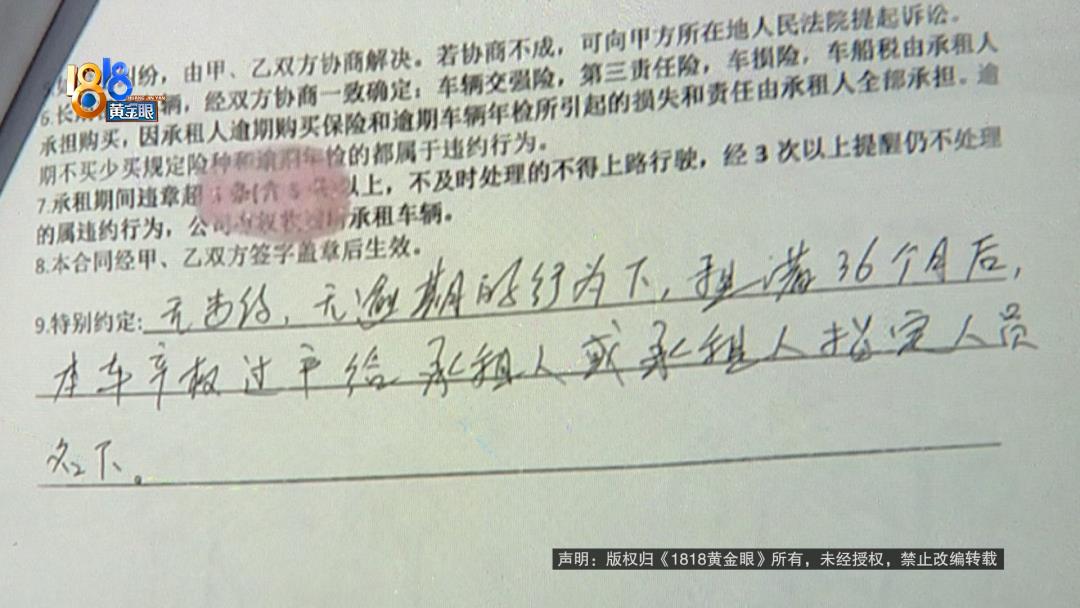 纷，由甲、乙双方协商解决。若协商不成，可向甲方所在地人民法院提起诉讼。
6.长 辆，经双方协商一致确定：车辆交强险，第三责任险，车损险，车船税由承租人
承担购买，因承租人逾期购买保险和逾期车辆年检所引起的损失和责任由承租人全部承担。逾
期不买少买规定险种和逾期年检的都属于违约行为。
7.承租期间违章超 5 条(含 5 条)以上，不及时处理的不得上路行驶，经 3 次以上提醒仍不处理
的属违约行为，公司有权收回所承租车辆。
8.本合同经甲、乙双方签字盖章后生效。
9.特别约定:无违约，无逾期的行为下，租满36个月后，
本车产权过户给承租人或承租人指定人员
名下。
1818
黄金眼
声明：版权归《1818黄金眼》所有，未经授权，禁止改编转载